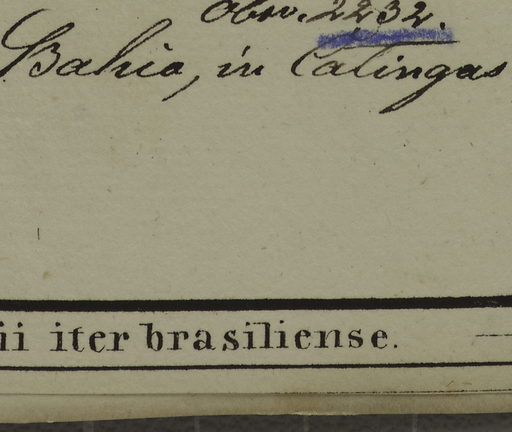 Obsv. 2232.
Bahia, in Catingas
ii iter brasiliense.